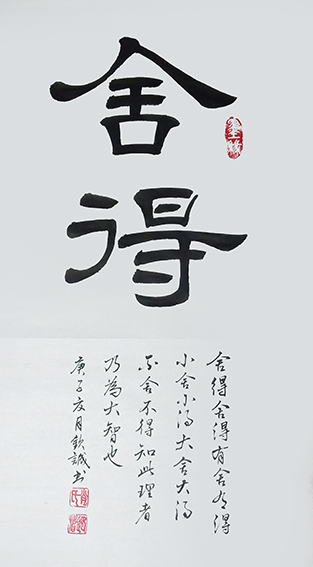 舍得
舍得舍得有舍有得
小舍小得大舍大得
不舍不得知此理者
乃为大智也
庚子友月钦诚书